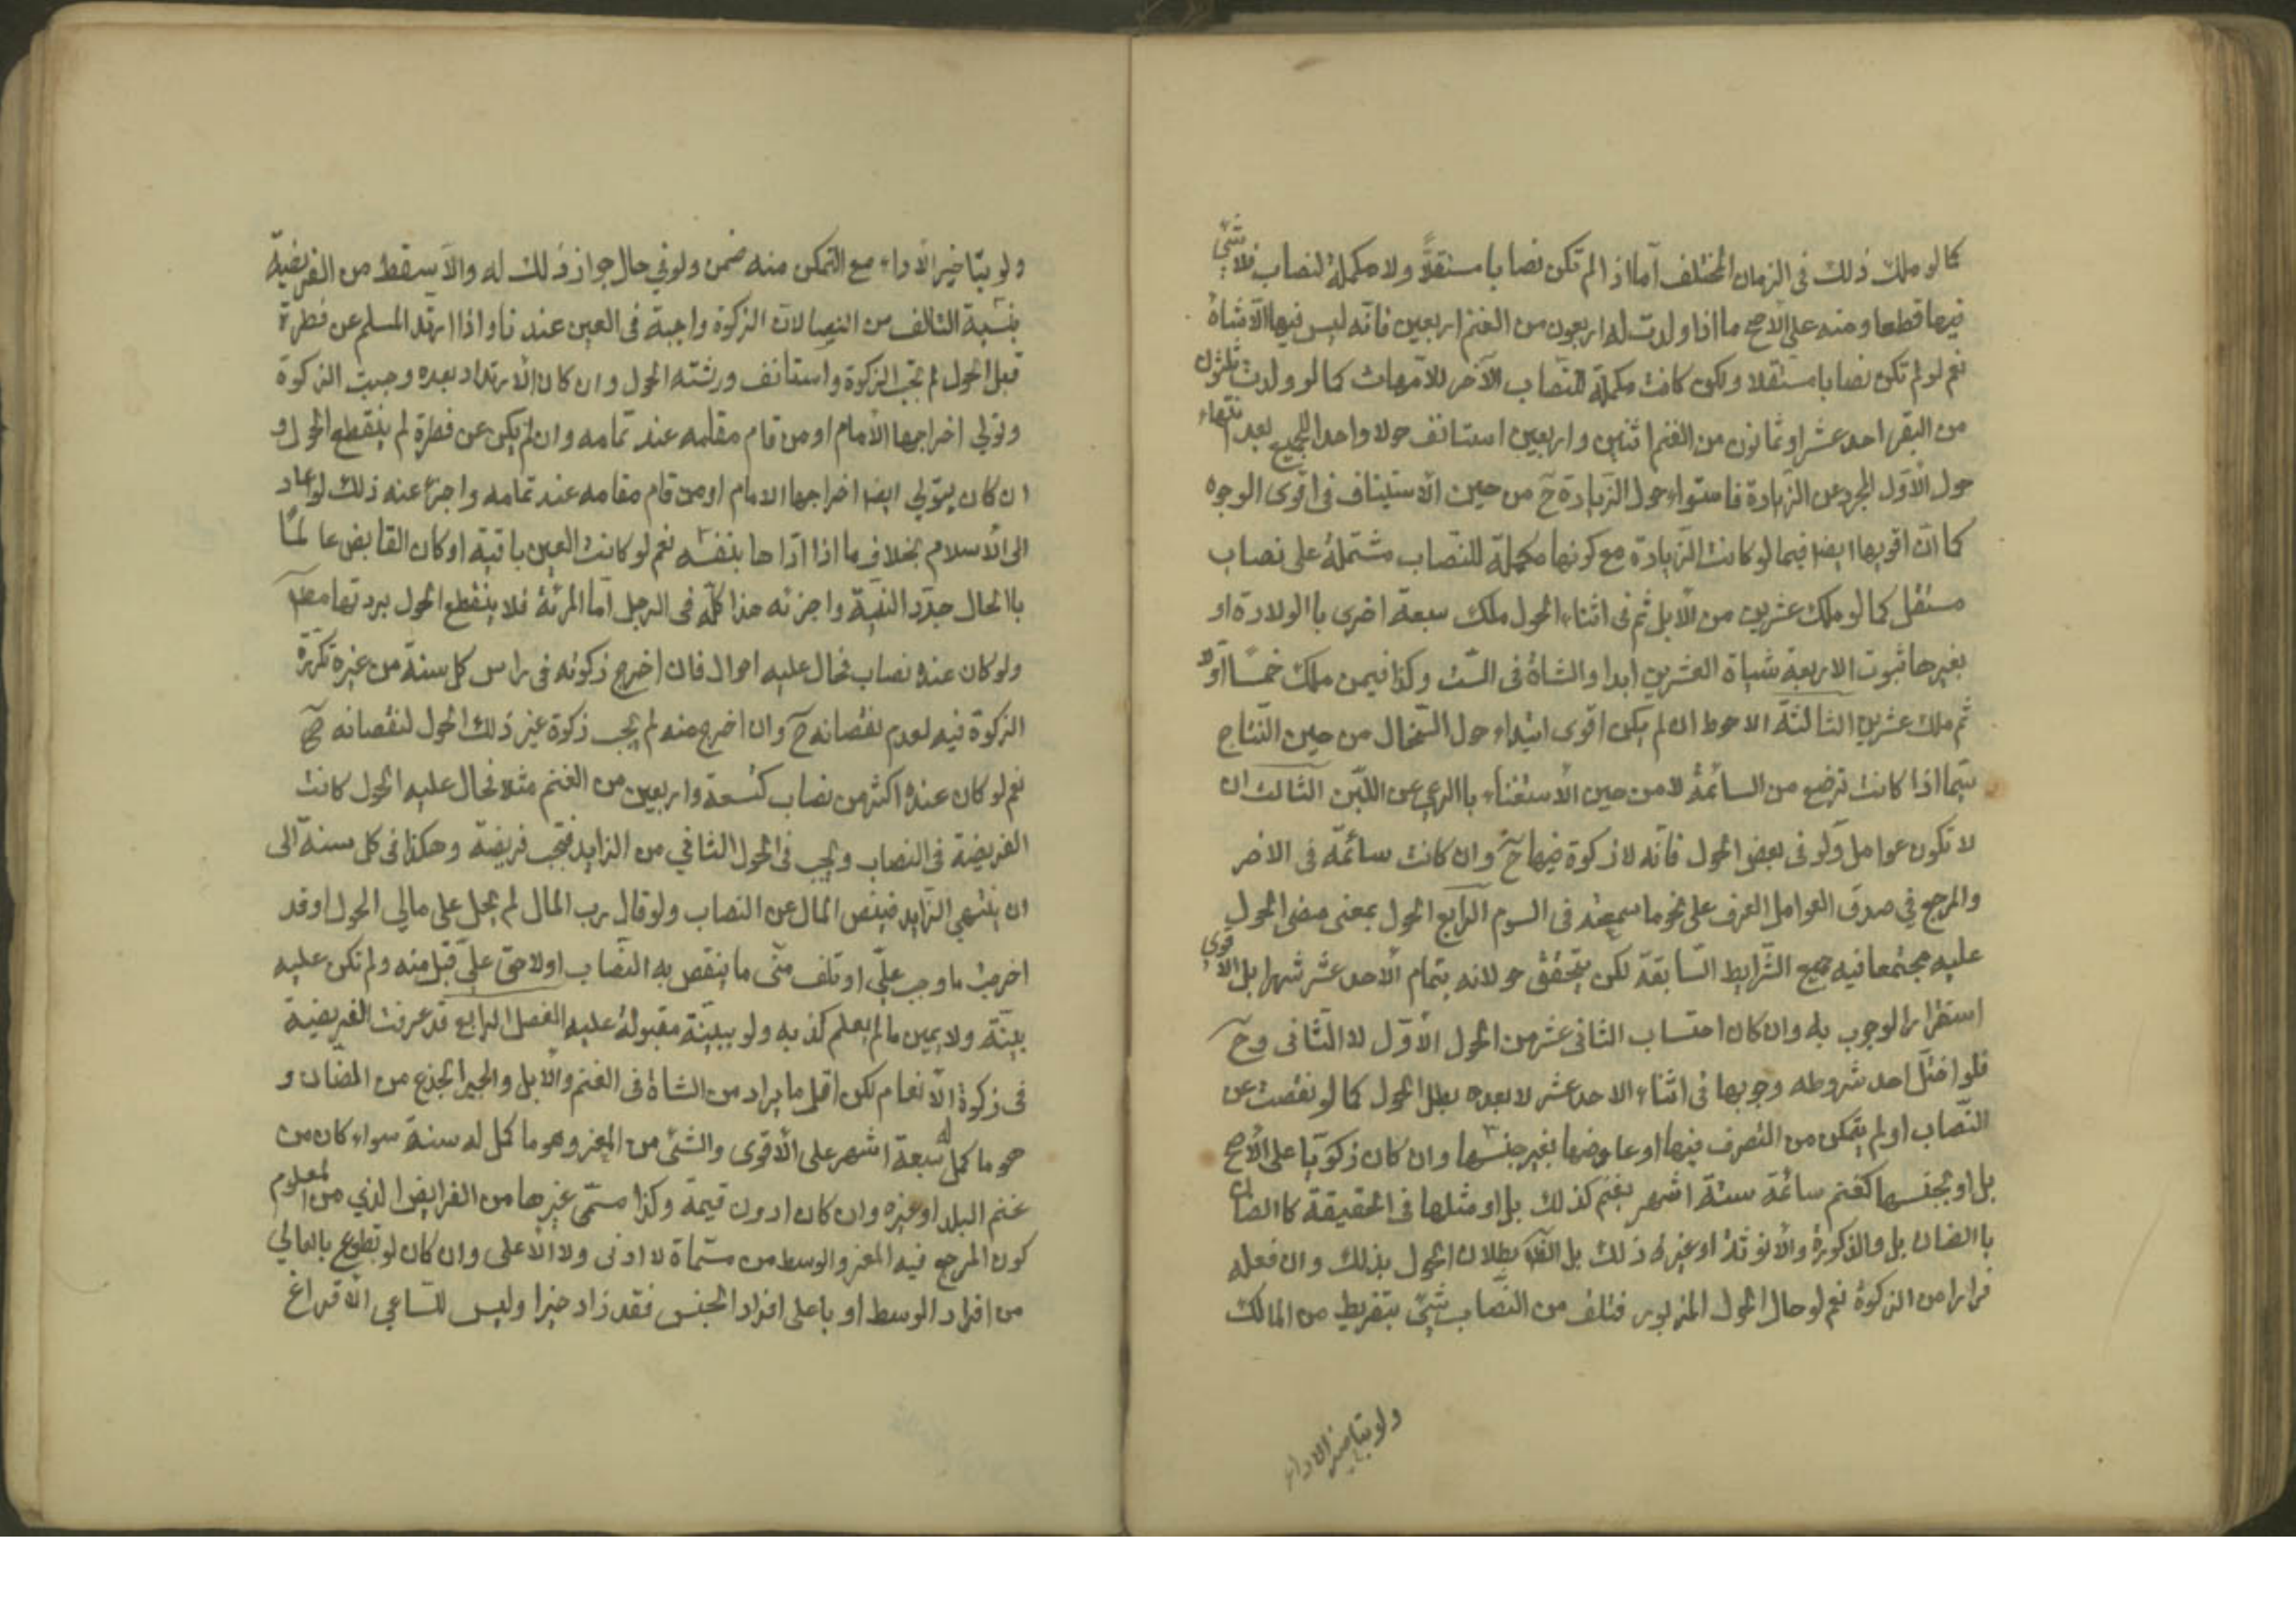 كما لو ملك ذلك فى الزمان المختلف آما اذا لم تكن نصابا مستقلاً ولا مكملة لنصاب فلا شئ
فيها قطعا ومنه على الاصح ما اذا ولدت له اربعون من الغنم اربعين فانّه ليس فيها الّا شاة
نعم لو لم تكن نصابا مستقلا ولكن كانت مكملة للنصاب الآخر للامهات كما لو ولدت ثلثون
من البقر احد عشر او ثمانون من الغنم اثنين واربعين استانف حولا واحدا للجميع بعد انتهاء
حول الأول المجرد عن الزيادة فاستواء حول الزيادة ح من حين الاستيناف فى اقوى الوجوه
كما انّ اقويها ايضا فيما لو كانت الزيادة مع كونها مكملة للنصاب مشتملة على نصاب
مستقل كما لو ملك عشرين من الأبل ثم فى اثناء الحول ملك سبعة اخرى باالولادة او
بغيرها ثبوت الاربعة شياة العشرين ابدا والشاة فى الست وكذا فيمن ملك خمسا اوّلا
ثم ملك عشرين الثالثة الاحوط ان لم يكن اقوى ابتداء حول السخال من حين النتاج
سيّما اذا كانت ترضع من السائمة لا من حين الأستغناء باالرعي عن اللبن الثالث ان
لا تكون عوامل ولو فى بعض الحول فانّه لا زكوة فيها ح وان كانت سائمة فى الاخر
والمرجع في صدق العوامل العرف على نحو ما سمعته فى السوم الرابع الحول بمعنى مضى الحول
عليه مجتمعا فيه جميع الشرايط السابقة لكن يتحقق حولانه بتمام الاحد عشر شهرا بل الأقوى
استقرار الوجوب به وان كان احتساب الثانى عشر من الحول الأول لا الثانى وح
فلو اختل احد شروطه وجوبها فى اثناء الاحد عشر لا بعده بطل الحول كما لو نقصت عن
النصاب او لم يتمكن من التصرف فيها او عاوضها بغير جنسها وان كان زكويا على الأصح
بل او بجنسها كغنم سائمة ستة اشهر بغنم كذلك بل او مثلها فى الحقيقة كالضان
باالضان بل والذكورة والأنوثة او غير ذلك بل الظ بطلان الحول بذلك وان فعله
فرارا من الزكوة نعم لو حال الحول المزبور فتلف من النصاب شئ بتفريط من المالك
ولو بتاخير الاداء
ولو بتاخير الأداء مع التمكن منه ضمن ولو في حال جواز ذلك له والّا سقط من الفريضة
بنسبة التالف من النصا لانّ الزكوة واجبة فى العين عندنا واذا ارتد المسلم عن فطرة
قبل الحول لم تجب الزكوة واستانف ورثته الحول وان كان الأرتداد بعده وجبت الزكوة
وتولي اخراجها الأمام او من قام مقامه عند تمامه وان لم يكن عن فطرة لم ينقطع الحول و
ان كان يتولي ايضا اخراجها الامام او من قام مقامه عند تمامه واجزء عنه ذلك لو عاد
الى الأسلام بخلاف ما اذا ادّاها بنفسه نعم لو كانت العين باقية او كان القابض عالمًا
باالحال جدّد النية واجزئه هذا كلّه فى الرجل آما المرئة فلا ينقطع الحول بردتها مطلقا
ولو كان عنده نصاب فحال عليه احوال فان اخرج زكوته فى راس كل سنة من غيره تكررة
الزكوة فيه لعدم نقصانه ح وان اخرج منه لم يجب زكوة غير ذلك الحول لنقصانه ح
نعم لو كان عنده اكثر من نصاب كتسعة واربعين من الغنم مثلا فحال عليه الحول كانت
الفريضة فى النصاب ويجب فى الحول الثاني من الزايد فتجب فريضة وهكذا فى كل سنة الى
ان ينتهي الزايد فينقص المال عن النصاب ولو قال رب المال لم يحل على مالي الحول او قد
اخرجت ما وجب عليّ او تلف منّى ما ينقص به النصاب او لا حق عليّ قبل منه ولم تكن عليه
بيّنة ولا يمين ما لم يعلم كذبه ولو ببيّنة مقبولة عليه الفصل الرابع قد عرفت الفريضة
فى زكوة الأنعام لكن اقل ما يراد من الشاة فى الغنم والأبل والجبر الجذع من الضان و
هو ما كمل له سبعة اشهر على الأقوى والثنى من المعز وهو ما كمل له سنة سواء كان من
غنم البلد او غيره وان كان ادون قيمة وكذا مسمّى غيرها من الفرايض الذي من المعلوم
كون المرجع فيه المعز والوسط من مسمّاة لا ادنى ولا الأعلى وان كان لو تطوع باالعالي
من افراد الوسط او باعلى افراد الجنس فقد زاد خيرا وليس للساعي الأقراع